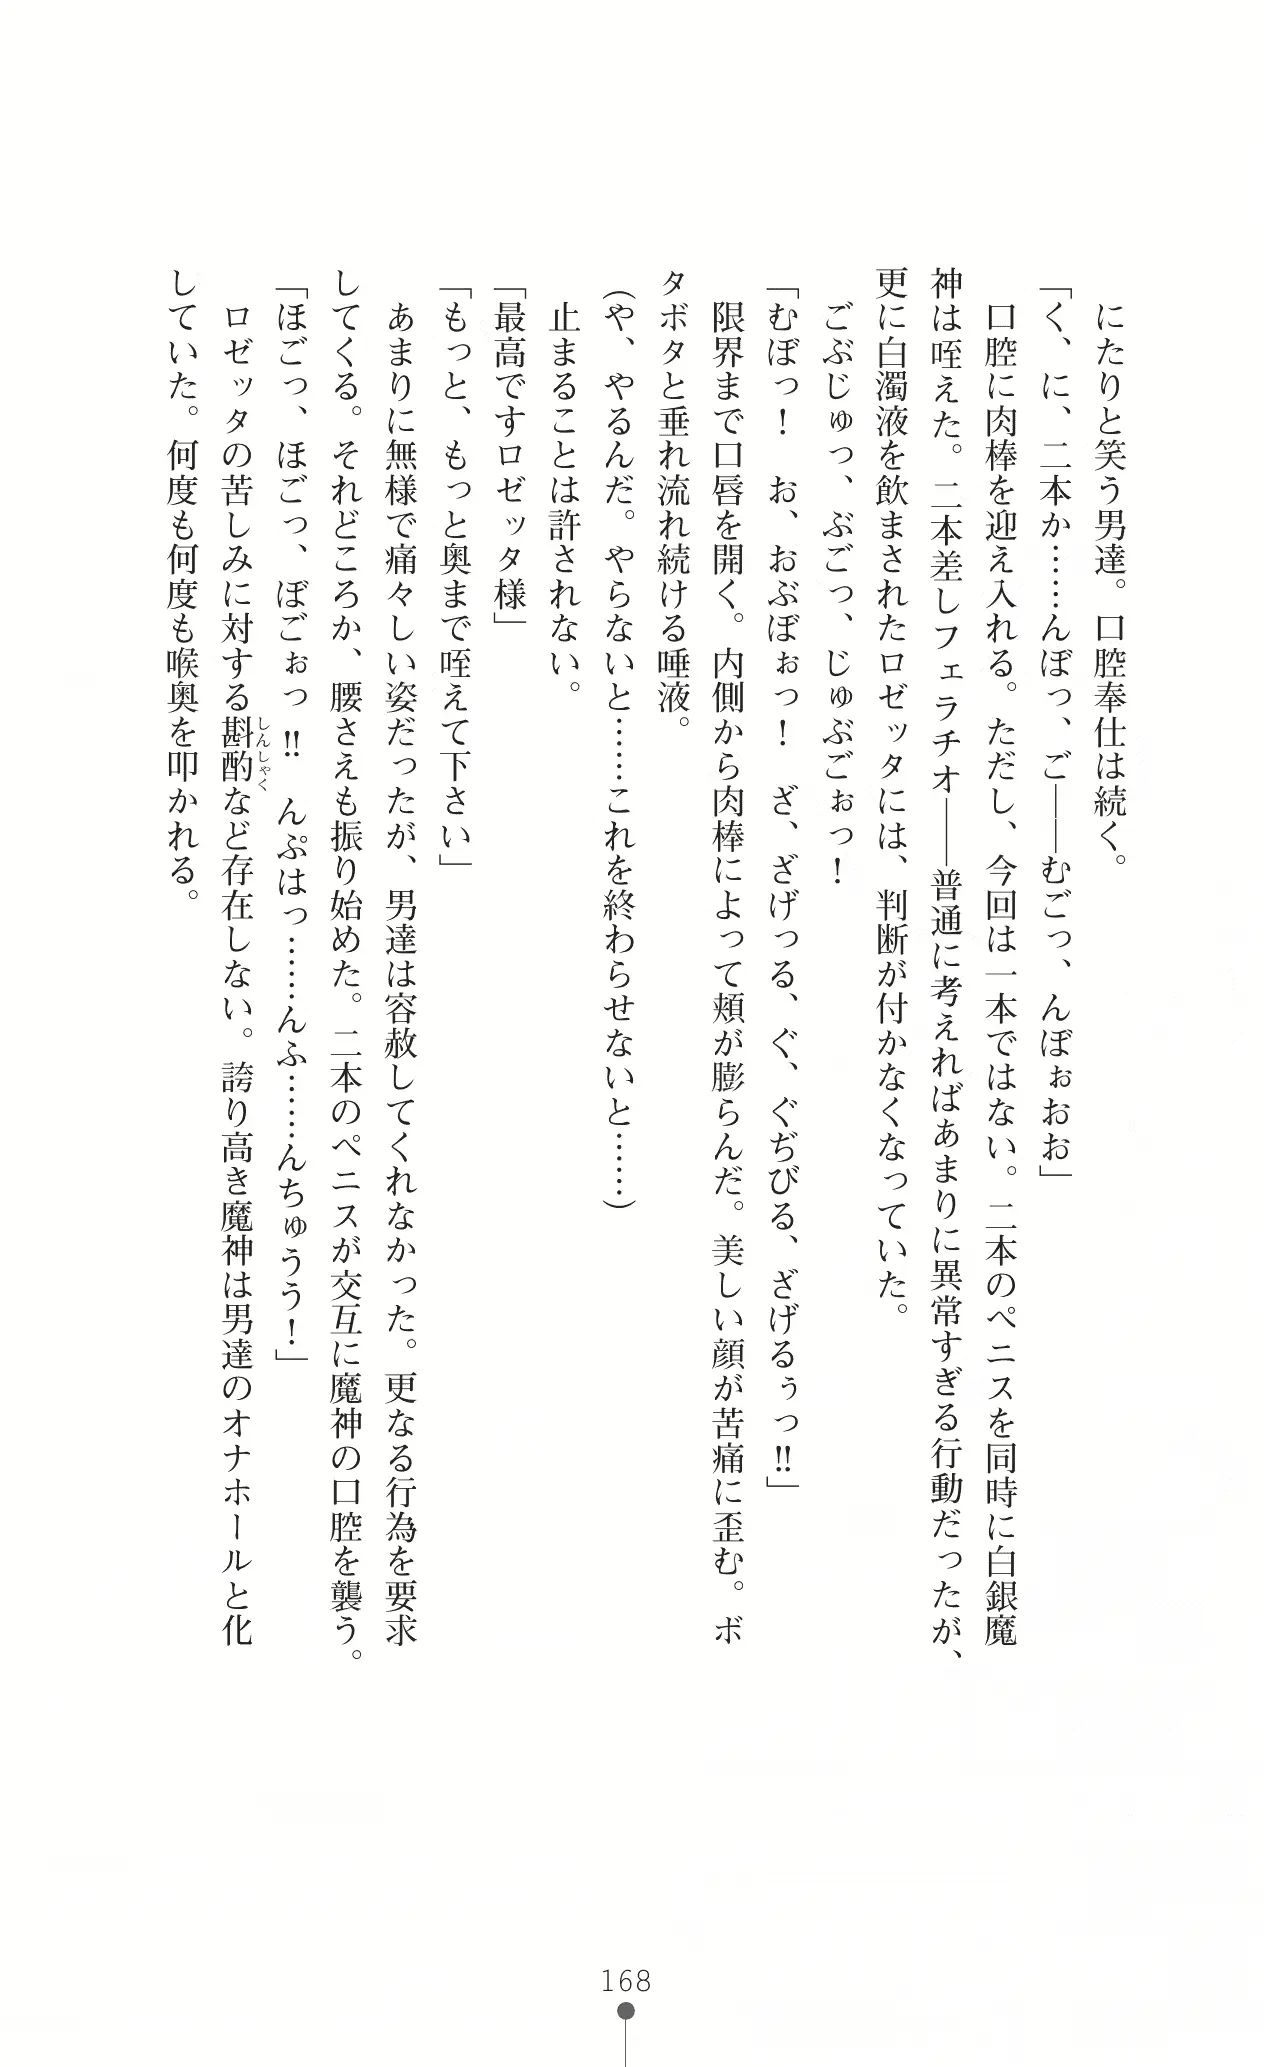 にたりと笑う男達。口腔奉仕は続く。
「く、に、二本か……んぼっ、ご――むごっ、んぼぉおお」
口腔に肉棒を迎え入れる。ただし、今回は一本ではない。二本のペニスを同時に白銀魔
神は咥えた。二本差しフェラチオ――普通に考えればあまりに異常すぎる行動だったが、
更に白濁液を飲まされたロゼッタには、判断が付かなくなっていた。
ごぶじゅっ、ぶごっ、じゅぶごぉっ！
「むぼっ！　お、おぶぼぉっ！　ざ、ざげっる、ぐ、ぐぢびる、ざげるぅっ!!」
限界まで口唇を開く。内側から肉棒によって頬が膨らんだ。美しい顔が苦痛に歪む。ボ
タボタと垂れ流れ続ける唾液。
（や、やるんだ。やらないと……これを終わらせないと……）
止まることは許されない。
「最高ですロゼッタ様」
「もっと、もっと奥まで咥えて下さい」
あまりに無様で痛々しい姿だったが、男達は容赦してくれなかった。更なる行為を要求
してくる。それどころか、腰さえも振り始めた。二本のペニスが交互に魔神の口腔を襲う。
「ほごっ、ほごっ、ぼごぉっ!!　んぷはっ……んふ……んちゅうう！」
ロゼッタの苦しみに対する斟酌など存在しない。誇り高き魔神は男達のオナホールと化
しんしゃく
していた。何度も何度も喉奥を叩かれる。
168